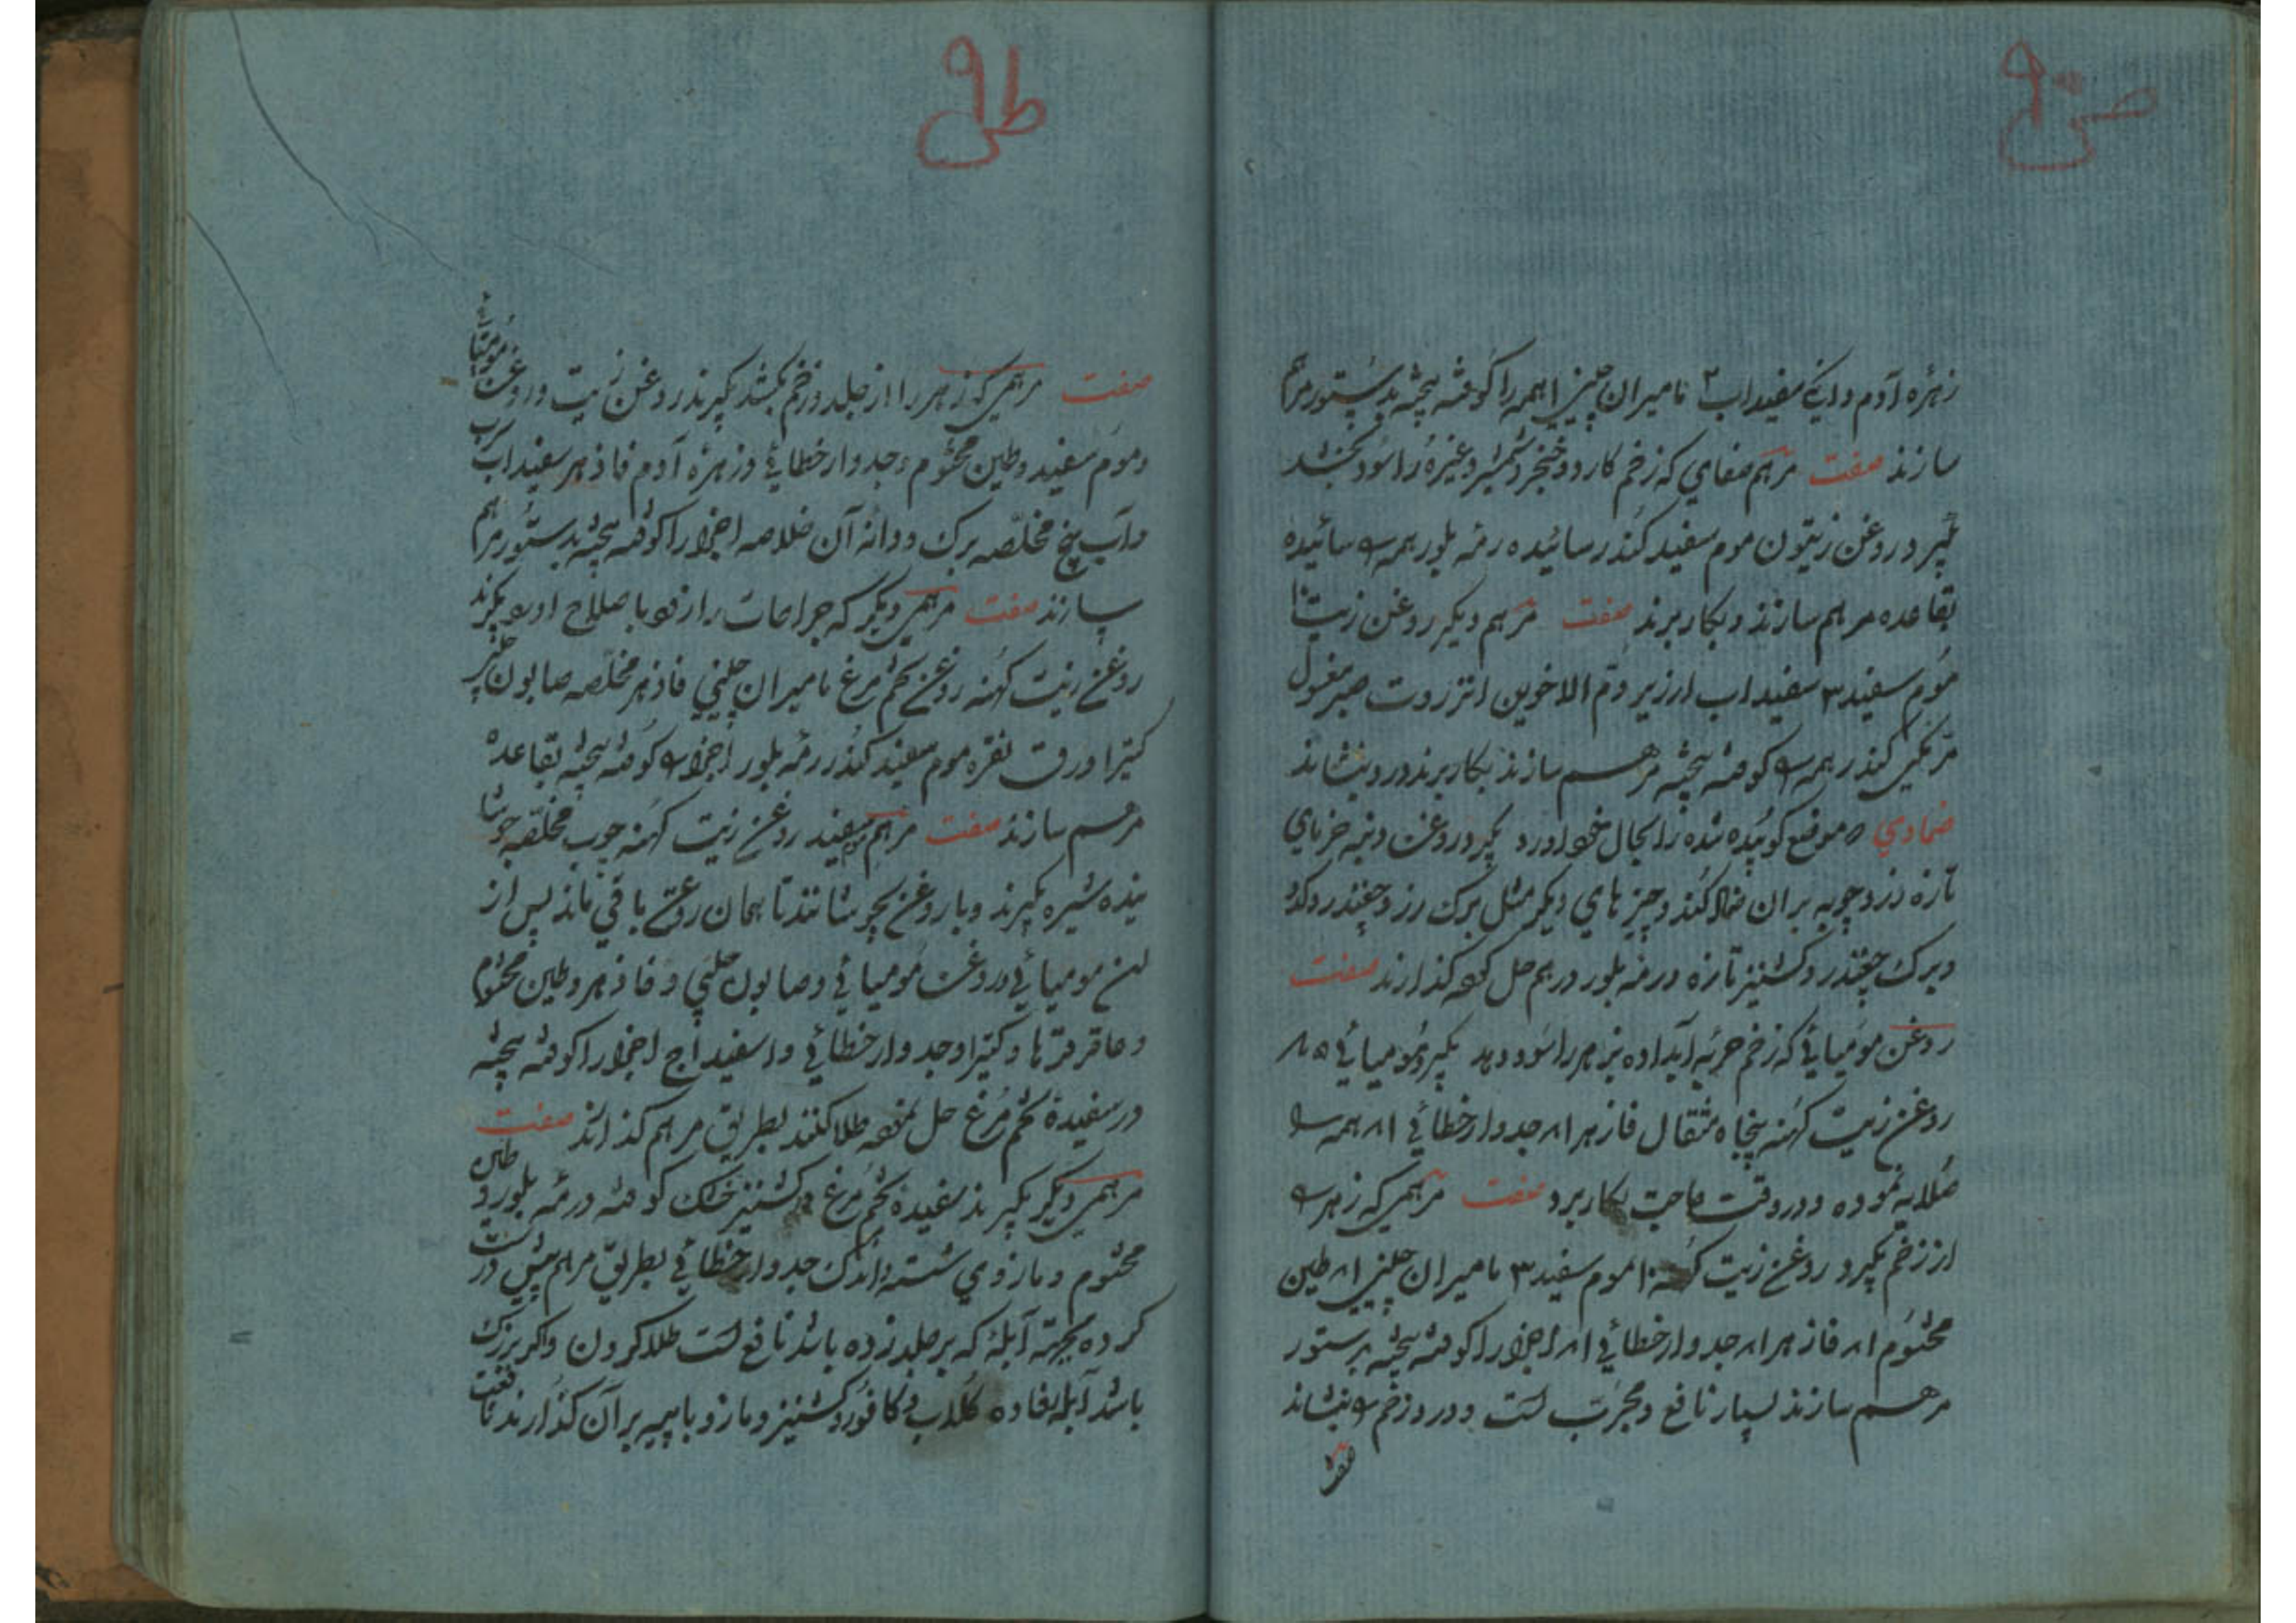 زهره آدم دانکی سفیداب ۲ مامیران چینی ا همه را کوفته پیخته بدستور مرهم
سازند صفت مرهم صفای که زخم کارد و خنجر و شمشیر و غیره را سود بخشد
بگیرد روغن زیتون موم سفید کندر سائیده رمه بلور همه را سائیده
بقاعده مرهم سازند و بکار برند صفت مرهم دیگر روغن زیت ۱۰
موم سفید ۳ سفیداب ارزیز دم الاخوین انزروت صبر مغسول
مرّ مکی کندر همه را کوفته پیخته مرهم سازند بکار برند درد بنشاند
ضمادی که موضع کوبیده شده را بحال خود آورد بگیرد روغن دنبه خرمای
تازه زردچوبه بران ضماد کنند و چیز های دیگر مثل برک رز و چغندر و کدو
و برک چغندر و کشنیز تازه و رمه بلور درهم حل کرده گذارند صفت
روغن مومیائی که زخم حربه آبداده بزهر را سود دهد بگیرد مومیائی
روغن زیت کهنه پنجاه مثقال فازهر ۱۸ جدوار خطائی ۱۸ همه را
صلایه نموده و در وقت حاجت بکار برد صفت مرهمی که زهر را
از زخم بگیرد روغن زیت کهنه ۱۰ موم سفید ۳ مامیران چینی ۱۸ طین
مختوم ۱۸ فازهر ۱۸ جدوار خطائی ۱۸ اجزا را کوفته پیخته بدستور
مرهم سازند بسیار نافع و مجرب است و درد زخم را بنشاند
صفت
صفت مرهمی که زهر را از جلد و زخم بکشد بگیرند روغن زیت و روغن مومیائی
و موم سفید و طین مختوم و جدوار خطائی و زهره آدم فاذزهر سفیداب سرب
و آب بیخ مخلّصه برک و دانه آن خلاصه اجزا را کوفته پیخته بدستور مرهم
بسازند صفت مرهمی دیگر که جراحات را زود باصلاح آورد بگیرند
روغن زیت کهنه روغن تخم مرغ مامیران چینی فاذزهر مخلّصه صابون حلبی
کتیرا ورق نقره موم سفید کندر رمه بلور اجزا را کوفته پیخته بقاعده
مرهم سازند صفت مرهم سفید روغن زیت کهنه چوب مخلّصه جوشا
نیده شیره بگیرند و با روغن بجوشانند تا همان روغن باقی ماند پس از
ان مومیائی و روغن مومیائی و صابون حلبی و فاذزهر و طین مختوم
و عاقرقرحا و کتیرا و جدوار خطائی و اسفیداج اجزا را کوفته پیخته
در سفیده تخم مرغ حل نموده طلا کنند بطریق مرهم گذارند صفت
مرهمی دیگر بگیرند سفیده تخم مرغ و کشنیز خشک کوفته و رمه بلور و طین
مختوم و مازوی شسته و اندک جدوار خطائی بطریق مرهم پیش درست
کرده بجهته آبله که بر جلد زده باشد نافع است طلا کردن و اگر بزرک
باشد آبله بفاده گلاب و کافور و کشنیز و مازو با پیه بر آن گذارند نافعست